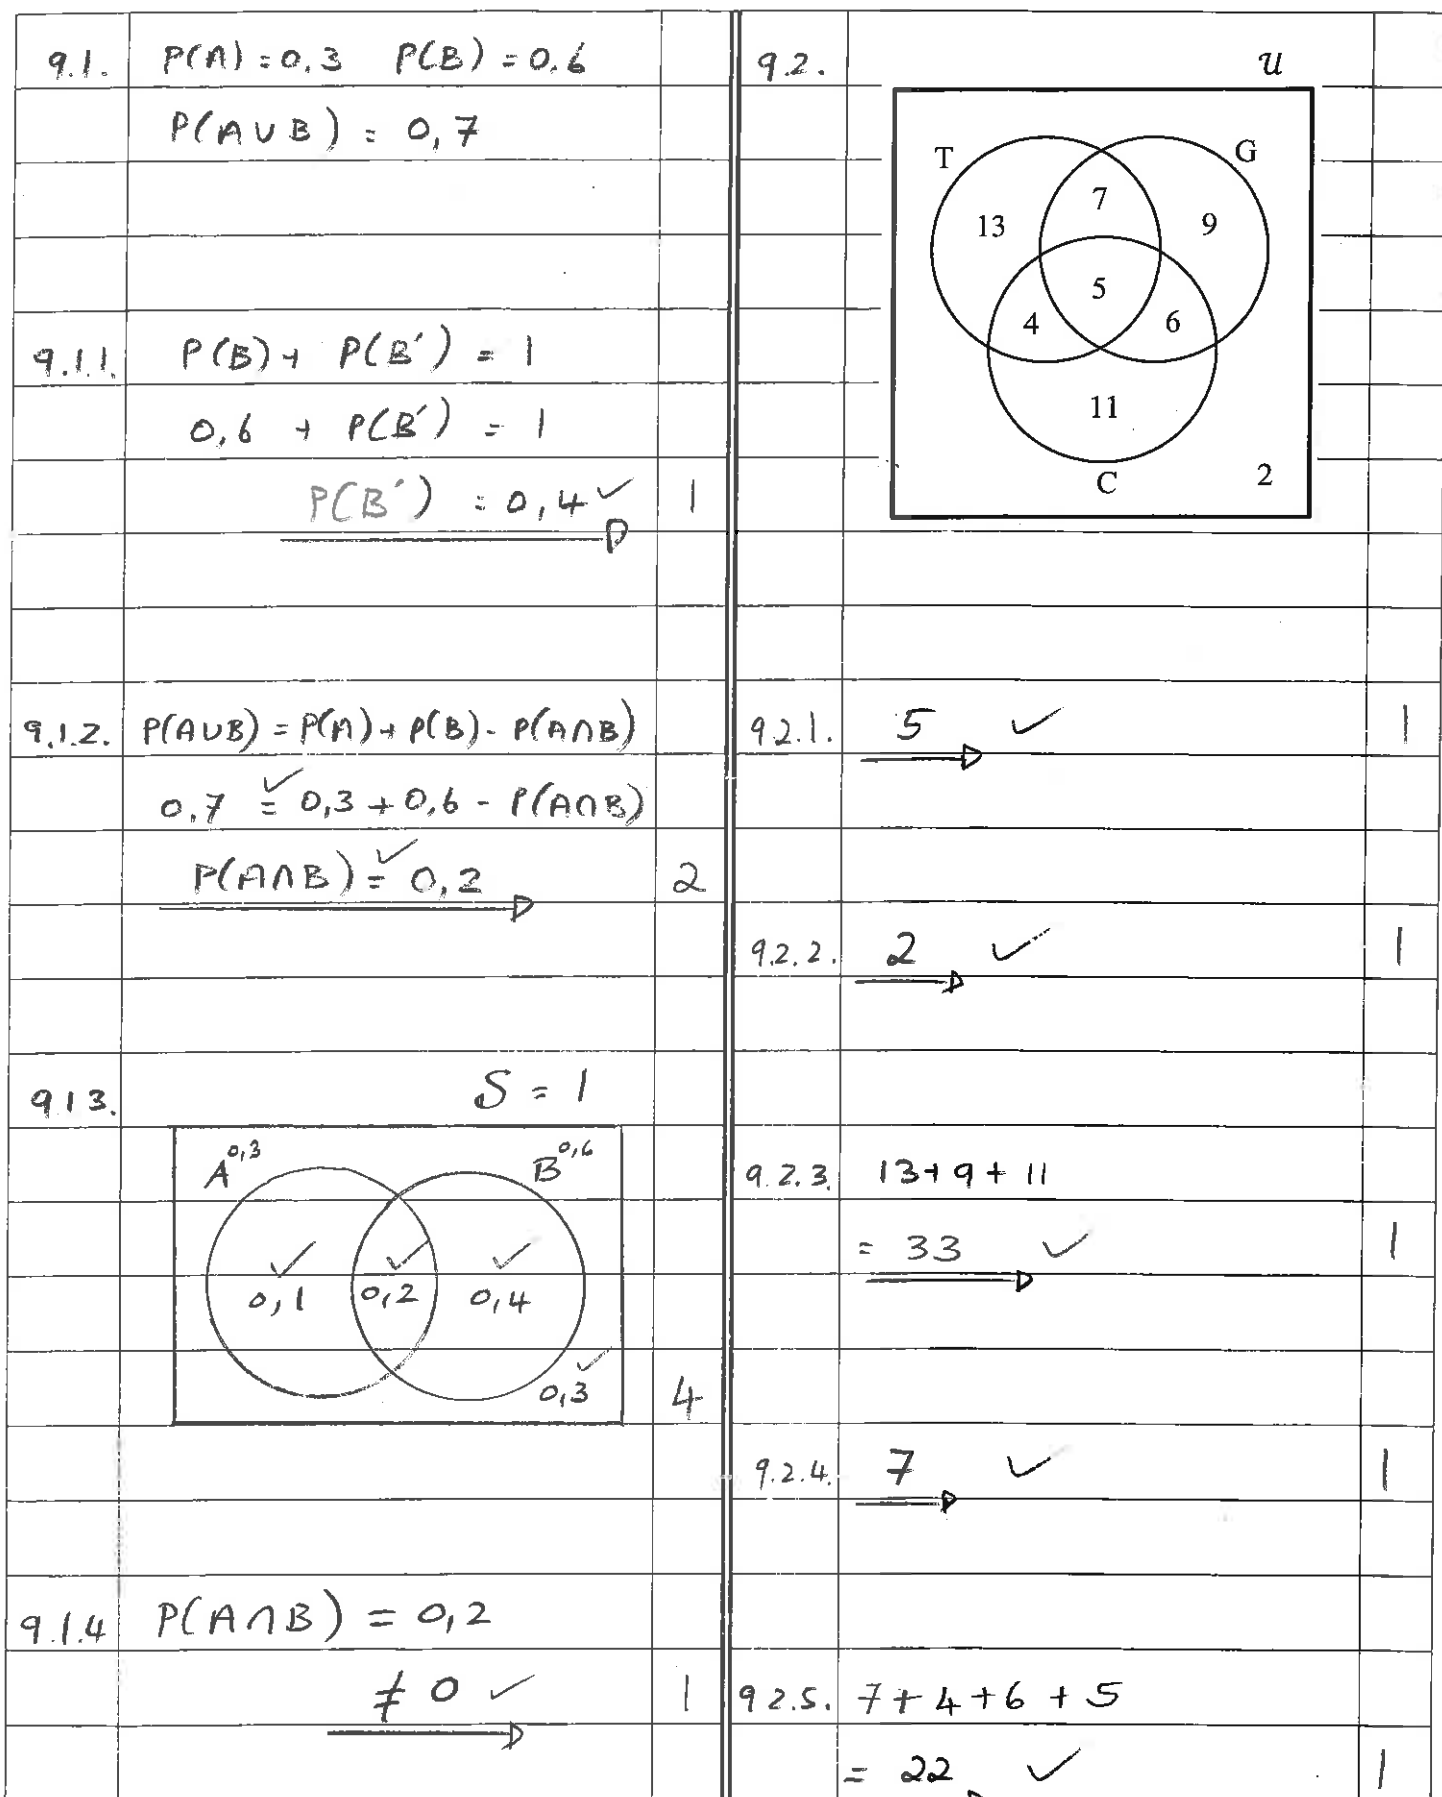 9.1. P(A) = 0,3 P(B) = 0,6
P(A∪B) = 0,7
9.1.1. P(B) + P(B′) = 1
0,6 + P(B′) = 1
P(B′) = 0,4 ✓ 1
9.1.2. P(A∪B) = P(A) + P(B) - P(A∩B)
0,7 =✓ 0,3 + 0,6 - P(A∩B)
P(A∩B) =✓ 0,2 2
9.1 3. S = 1
A 0,3 B 0,6
✓ ✓ ✓
0,1 0,2 0,4
0,3 ✓ 4
9.1.4 P(A∩B) = 0,2
≠ 0 ✓ 1
9.2. U
T G
7
13 9
5
4 6
11
C 2
9.2.1. 5 ✓ 1
9.2.2. 2 ✓ 1
9.2.3. 13 + 9 + 11
= 33 ✓ 1
9.2.4. 7 ✓ 1
9 2.5. 7 + 4 + 6 + 5
= 22 ✓ 1